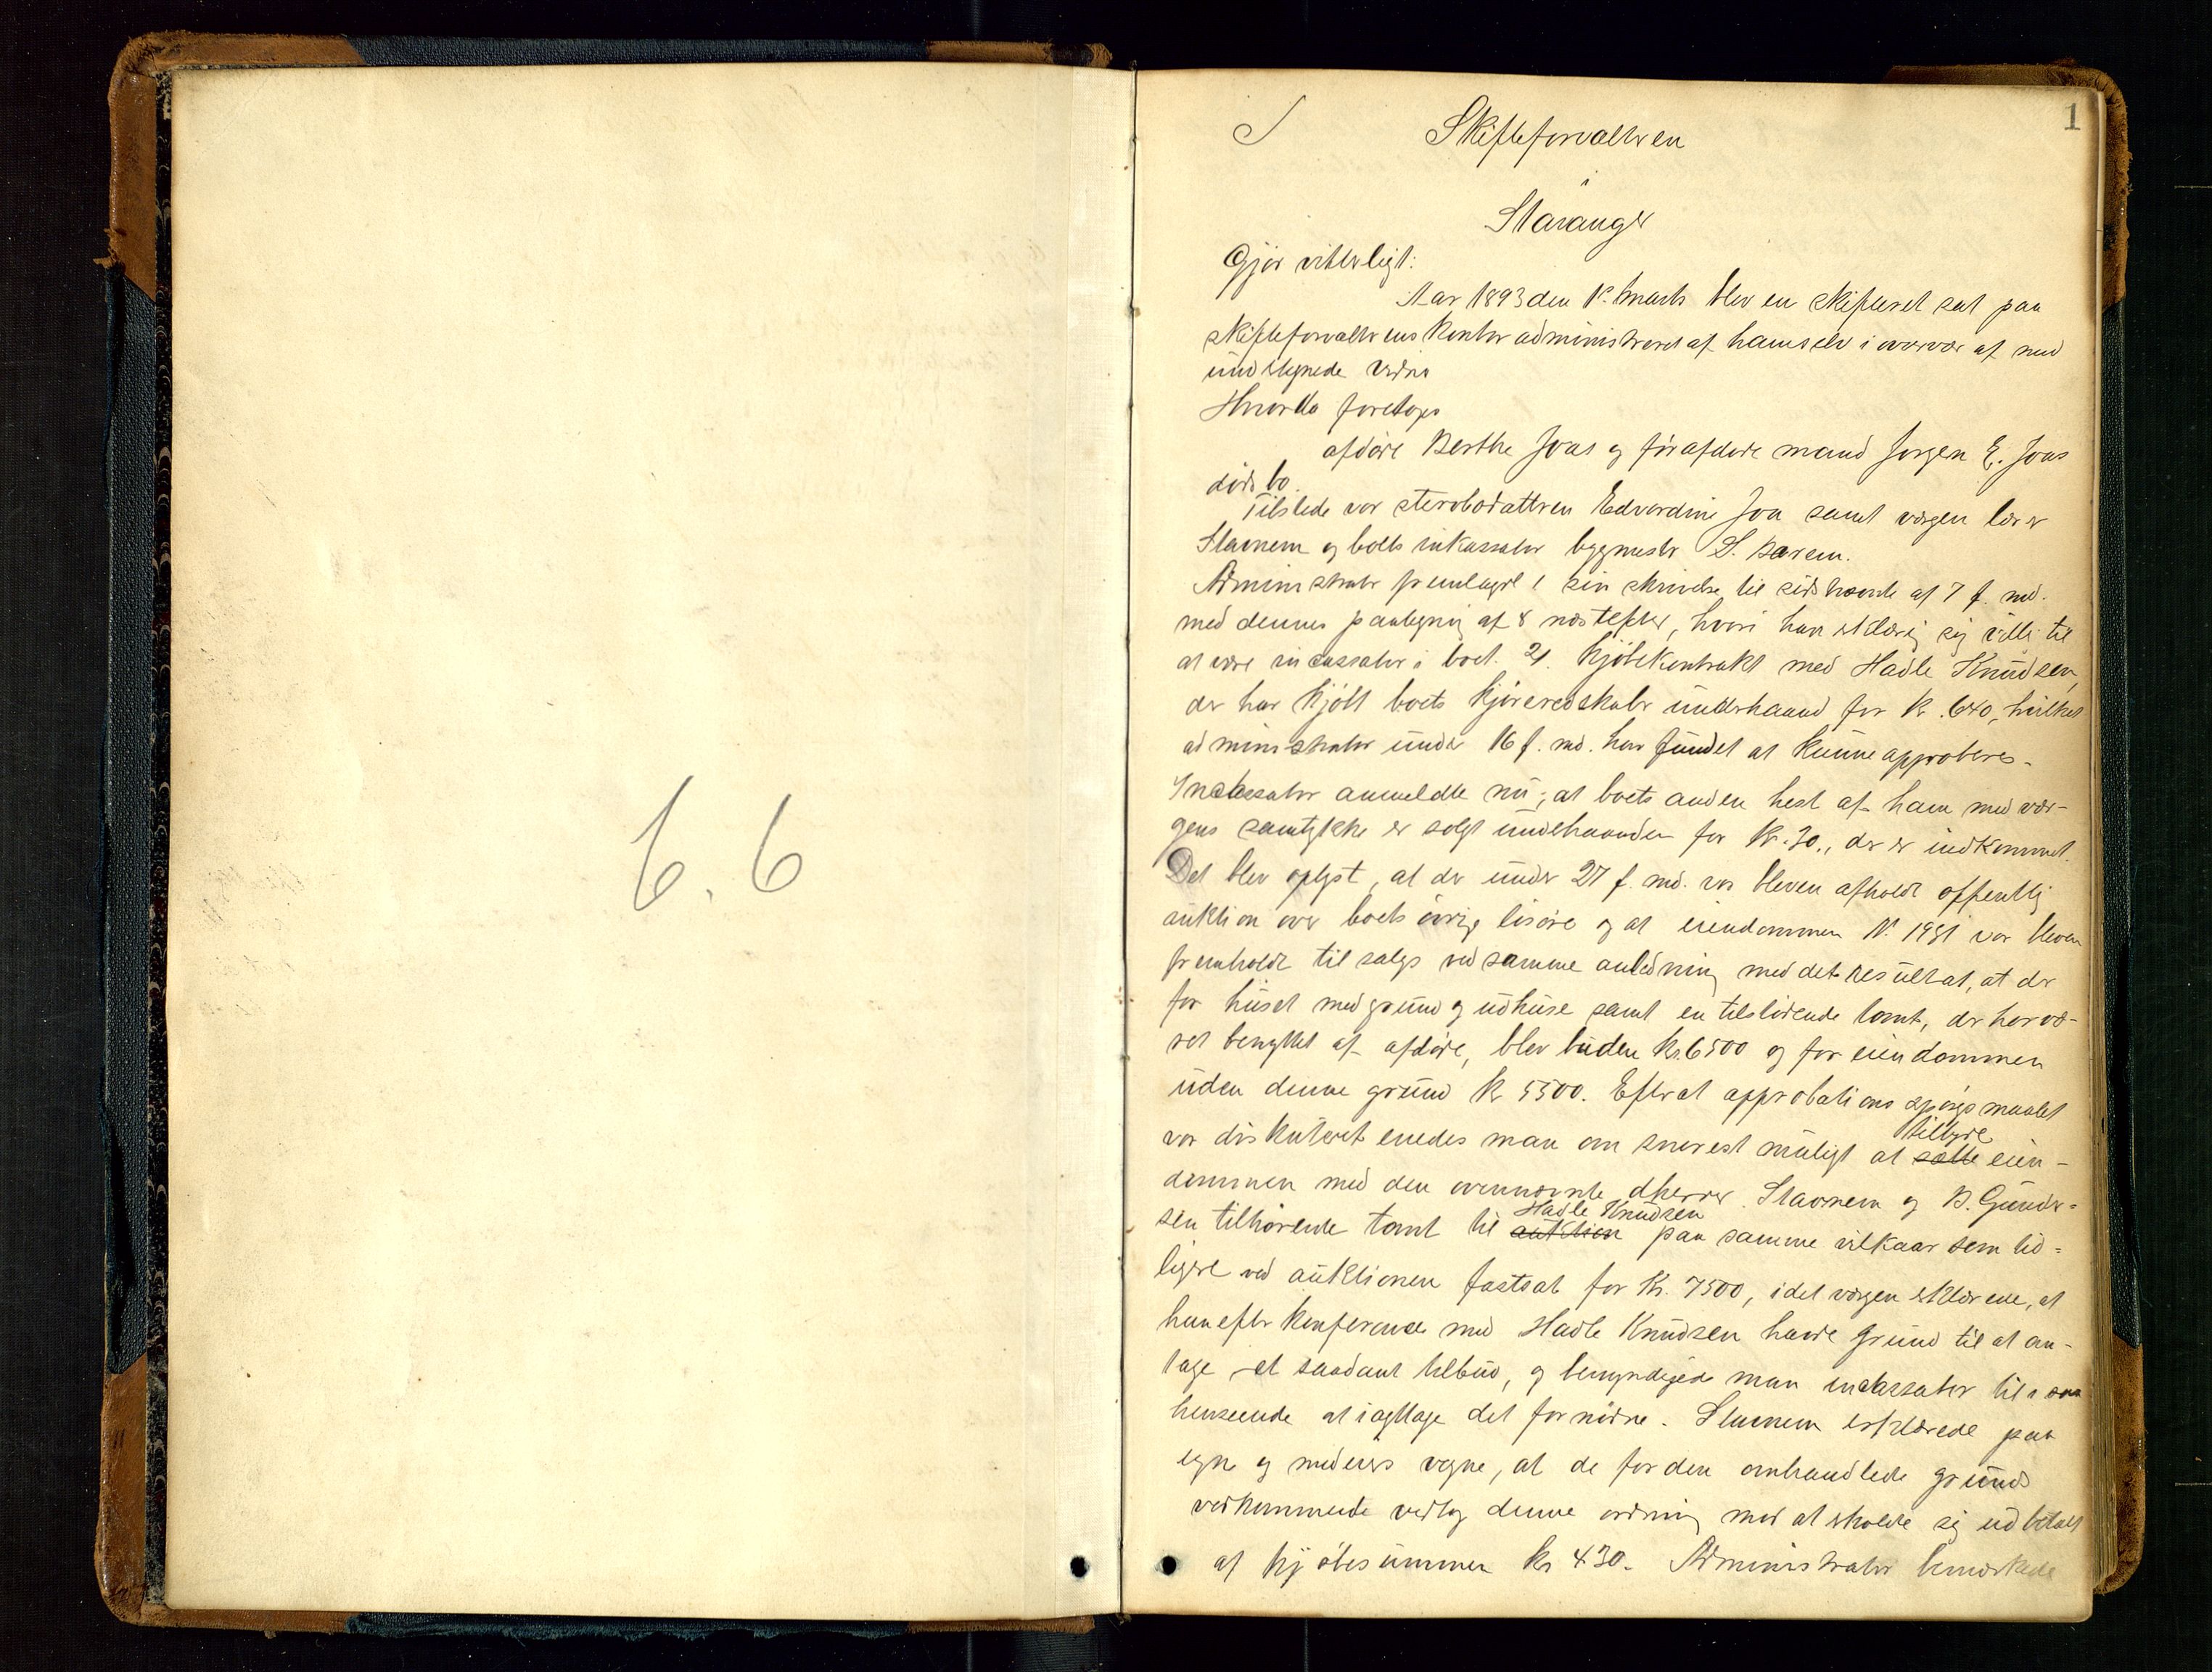 6.6
1
Skifteforvalteren
i
Stavanger
Gjør vitterligt:
Aar 1893 den 1. marts blev en skifteret sat paa
skifteforvalterens kontor administreret af ham selv i overvær af med
undertegnede vidne
Hvorda foretoges
afdøre Berthe Joas og førafdøre mand Jørgen E. Joas
dødsbo.
Tilstede var sterbodatteren Edvardine Joa samt værgen lærer
Stavnem og boets inkassator bygmester S. Barem.
Administrator fremlagde 1 sin skrivelse til sidstnævnte af 7 f. md.
med dennes paategning af 8 næstefter, hvori han erklærer sig villi til
at være incassator i boet. 2. Kjøbekontrakt med Hadle Knudsen,
der har kjøbt boets kjøreredskaber underhaand for kr. 640, hvilket
administrator under 16 f. md. har fundet at kunne approberes.
Incassator anmeldte nu, at boets anden hest af ham med vær-
gens samtykke er solgt underhaanden for kr. 30., der er indkommet.
Det blev oplyst, at der under 27 f. md. var bleven afholdt offentlig
auktion over boets øvrige løsøre og at eiendommen N. 1981 var bleven
fremholdt til salgs ved samme anledning med det resultat, at der
for huset med grund og udhuse samt en tilstødende tomt, der har væ-
ret benyttet af afdøre, blev buden kr. 6500 og for eiendommen
uden denne grund kr 5500. Efterat approbations spørgsmaalet
var diskuteret enedes man om snarest muligt at sætte eien-
tilbyde
dommen med den ovennævnte dherrer Stavnem og B. Gunder-
Hadle Knudsen
sen tilhørende tomt til auktion paa samme vilkaar som tid-
ligere ved auktionen fastsat for kr. 7500, idet værgen erklærede, at
han efter konferance med Hadle Knudsen havde grund til at an-
tage et saadant tilbud, og bemyndigede man incassator til i saa
henseende at iagttage det fornødne. Stavnem erklærede paa
egne og medeiers vegne, at de for den omhandlede grunds
vedkommende vedtog denne ordning mod at erholde sig udbetalt
af kjøbesummen kr 430. Administrator bemærkede